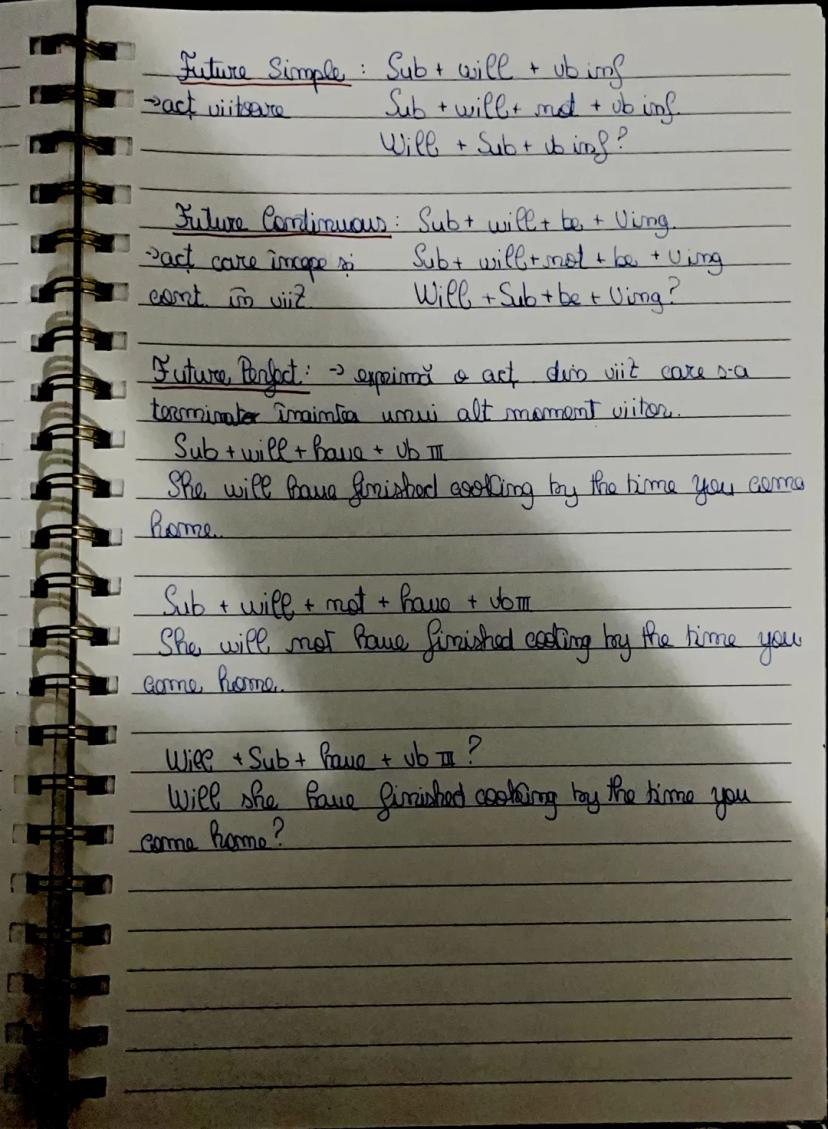 Future Simple : Sub + will + vb inf
→act viitoare Sub + will + not + vb inf.
Will + Sub + vb inf?
Future Continuous : Sub + will + be + Ving.
→act care începe și Sub + will + not + be + Ving
cont. în viit. Will + Sub + be + Ving?
Future Perfect : → exprimă o act din viit care s-a
terminat înaintea unui alt moment viitor.
Sub + will + have + vb III
She will have finished cooking by the time you come
home.
Sub + will + not + have + vb III
She will not have finished cooking by the time you
come home.
Will + Sub + have + vb III ?
Will she have finished cooking by the time you
come home?